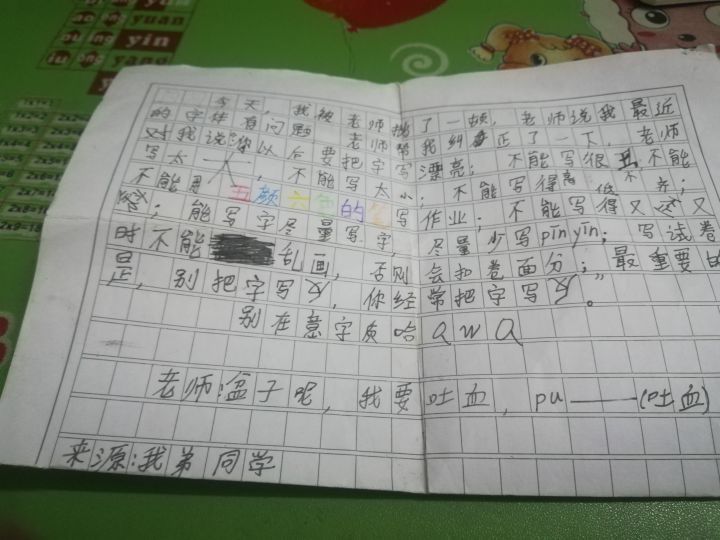 今天，我被老师揍了一顿，老师说我最近
的字体有问题，老师帮我纠正了一下，老师
对我说："你以后要把字写漂亮；不能写很丑，不能
写太大，不能写太小；不能写得高低不齐；
不能用五颜六色的笔写作业；不能写得又又
；能写字尽量写字，尽量少写pīnyīn；写试卷
时不能乱画，否则会扣卷面分；"最重要的
是，别把字写反，你经常把字写反。
别在意字质哈QWQ
老师：盆子呢，我要吐血，pu——(吐血)
来源：我弟同学
yuan
yin
yun
ying